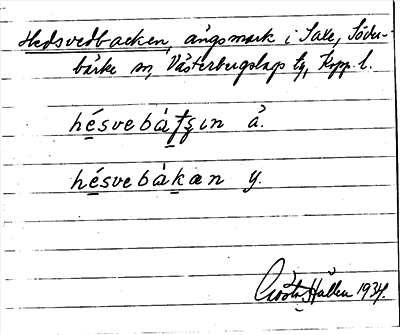 Hedsvedbacken, ängsmark i Saxe, Söder-
bärke sn, Västerbergslags tg, Kopp. l.
hésvebátʂın ä.
hésvebákan y.
Gösta Hallen 1934.